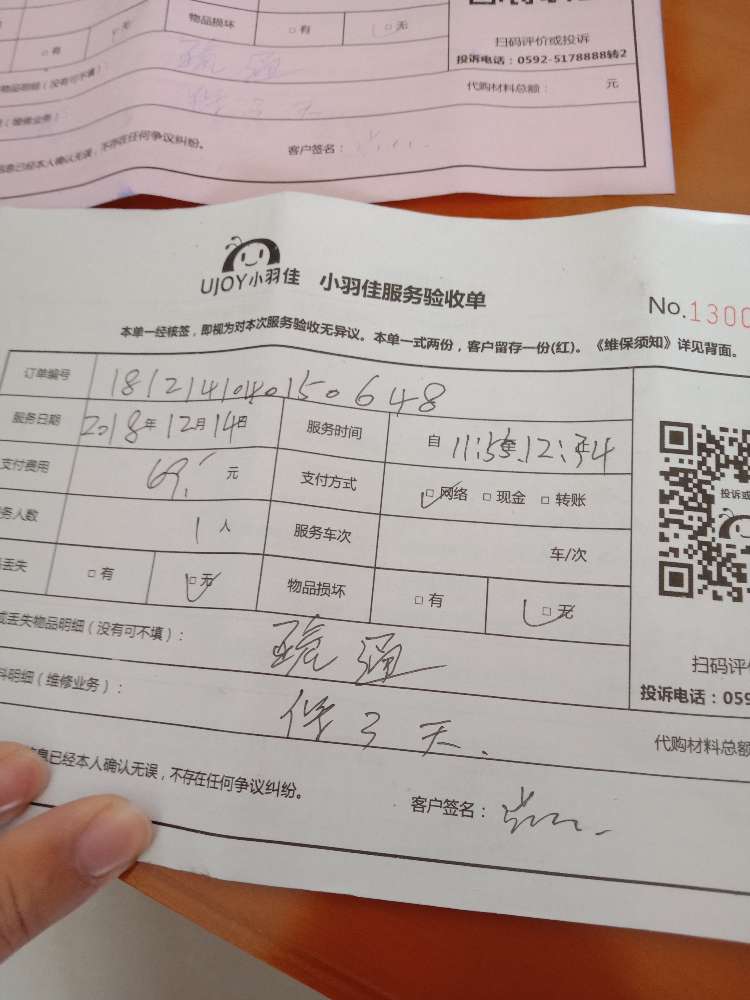 物品损坏 □ 有 □ 无
□ 有
扫码评价或投诉
投诉电话：0592-5178888转2
物品明细（没有可不填）： 疏通
代购材料总额： 元
（维修业务）： 保3天
息已经本人确认无误，不存在任何争议纠纷。 客户签名：
UJOY小羽佳 小羽佳服务验收单
No.1300
本单一经核签，即视为对本次服务验收无异议。本单一式两份，客户留存一份(红)。《维保须知》详见背面。
订单编号 1812141040150648
服务日期 2018年12月14日 服务时间 自 11:55至12:34
支付费用 69. 元 支付方式 □ 网络 □ 现金 □ 转账
务人数 1 人 服务车次 车/次
丢失 □ 有 □ 无 物品损坏 □ 有 □ 无
投诉或
或丢失物品明细（没有可不填）： 疏通
扫码评价
投诉电话：059
料明细（维修业务）： 保3天.
代购材料总额
息已经本人确认无误，不存在任何争议纠纷。 客户签名：